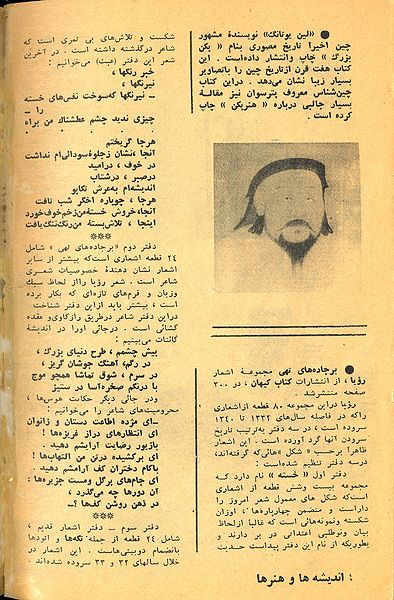 ● «لین یوتانگ» نویسندهٔ مشهور
چین اخیرا تاریخ مصوری بنام « پکن
بزرگ » چاپ وانتشار داده‌است . این
کتاب هفت قرن ازتاریخ چین را باتصاویر
بسیار زیبا نشان می‌دهد . دراین کتاب
چین‌شناس معروف پترسوان نیز مقالهٔ
بسیار جالبی درباره « هنرپکن » چاپ
کرده است .
● برجاده‌های تهی مجموعهٔ اشعار
رؤیا ، از انتشارات کتاب کیهان ، در ۳۰۰
صفحه منتشرشد .
رؤیا دراین مجموعه ۸۰ قطعه ازاشعاری
راکه در فاصله سال‌های ۱۳۳۲ تا ۱۳۴۰
سروده است ، در سه دفتر به‌ترتیب تاریخ
سرودن آنها گرد آورده است . این اشعار
ظاهرا برحسب « شکل »هائی‌که گرفته‌اند،
درسه دفتر تنظیم شده‌است :
دفتر اول « خسته » نام دارد که
مجموعه بیست وشش قطعه از اشعاری
است‌که شکل های معمول شعر امروز را
داراست و متضمن چهارپاره‌ها ، اوزان
شکسته ونمونه‌هائی است که غالبا ازلحاظ
بیان ونوطلبی اعتدالی در بر دارند و
بطوریکه از نام این دفتر پیداست حدیث
شکست و تلاش‌های بی ثمری است که
شاعر درگذشته داشته است . در آخرین
شعر این دفتر (عبث) می‌خوانیم :
خیر رنگها ،
نیرنگها ،
– نیرنگها که‌سوخت نفس‌های خسته
را –
چیزی ندید چشم عطشناک من براه
هرجا گریختم
آنجا ،نشان زجلوهٔ‌سودائی‌ام نداشت
در خوف ، درامید
درصبر ، درشتاب
اندیشه‌ام به‌عرش تکاپو
هرجا ، چوپاره اخگر شب تافت
آنجا،خروش خستهٔ‌من‌زخم‌خوف‌خورد
اینجا ، تلاش‌بستهٔ من‌رنگ‌ننگ‌یافت
***
دفتر دوم «برجاده‌های تهی » شامل
۲۴ قطعه اشعاری است‌که بیشتر از سایر
اشعار نشان دهندهٔ خصوصیات شعری
شاعر است . شعر رؤیا رااز لحاظ سبک
وزبان و فرم‌های تازه‌ای که بکار برده
است ، بیشتر باید ازاین دفتر شناخت .
دراین دفتر شاعر درطریق رازکاوی‌و عقده
گشائی است . درجائی اورا در اندیشهٔ
کائنات می‌بینیم :
پیش چشمم ، طرح دنیای بزرگ ،
در رگم، آهنگ جوشان گریز ،
در سرم ، شوق تماشا همچو موج
با درنگم صخره‌آسا در ستیز
ودر جائی دیگر حکایت هوس‌ها ،
محرومیت‌های شاعر را می‌خوانیم :
–ای مژده اطاعت دستان و زانوان
ای انتظارهای دراز غریزه‌ها !
بازیور رضایت آرایشم دهید .
ای برکشیده درتن من التهاب‌ها !
باکام دختران کف آرامشم دهید .
ای جام‌های برگ ومست جزیره‌ها ،
آن دورها چه می‌گذرد ،
در ذهن روشن کف‌ها ؟–
دفتر سوم – دفتر اشعار قدیم ،
شامل ۲۴ قطعه از جمله تک‌ها و اتودها
بانضمام دوبیتی‌هاست . این اشعار در
خلال سالهای ۳۲ و ۳۳ سروده شده‌اند .
اندیشه ها و هنرها